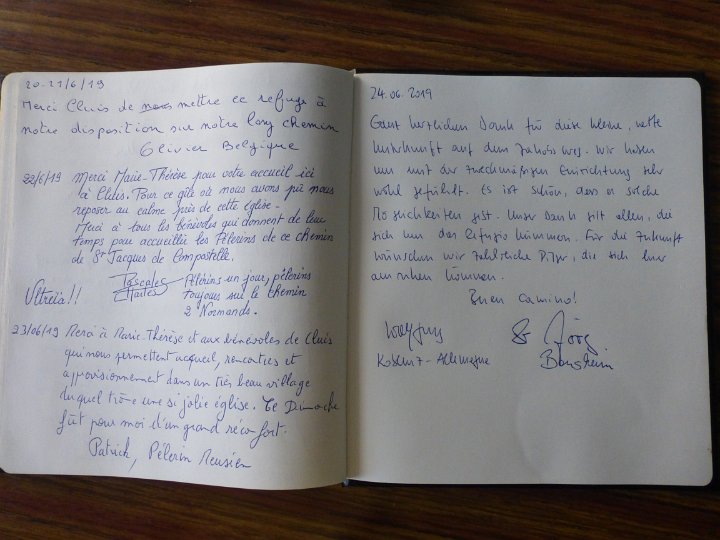 20-21/6/19
Merci Cluis de nous mettre ce refuge à
notre disposition sur notre long chemin
Olivier Belgique
22/6/19 Merci Marie-Thérèse pour votre accueil ici
à Cluis. Pour ce gîte où nous avons pû nous
reposer au calme près de cette église.
Merci à tous les bénévoles qui donnent de leur
temps pour accueillir les Pèlerins de ce chemin
de St Jacques de Compostelle.
Ultreïa!! Pèlerins un jour, pèlerins
toujours sur le chemin
2 Normands.
23/06/19 Merci à Marie-Thérèse et aux bénévoles de Cluis
qui nous permettent accueil, rencontres et
approvisionnement dans un très beau village
duquel trône une si jolie église. Ce Dimanche
fût pour moi d'un grand réconfort.
Patrick, Pélerin
24.06.2019
Ganz herzlichen Dank für diese kleine, nette
Unterkunft auf dem Jakobsweg. Wir haben
uns mit der zweckmäßigen Einrichtung sehr
wohl gefühlt. Es ist schön, dass es solche
Möglichkeiten gibt. Unser Dank gilt allen, die
sich um das Refugio kümmern. Für die Zukunft
wünschen wir zahlreiche Pilger, die sich hier
ausruhen können.
Buen Camino!
Wolfgang & Jörg
Koblenz - Allemagne